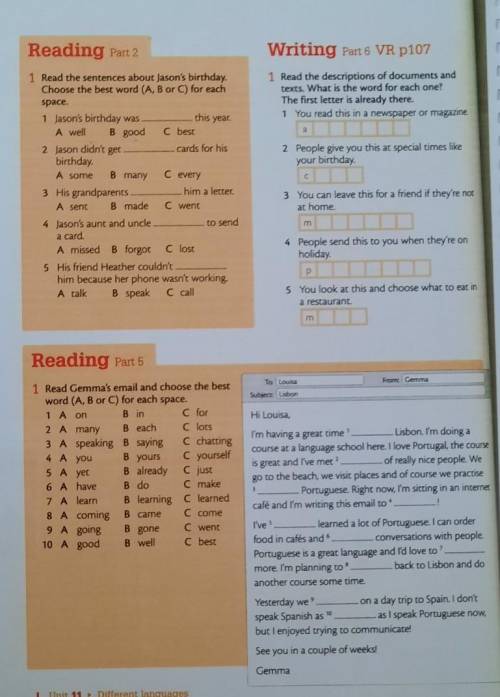 Reading Part 2
1 Read the sentences about Jason's birthday.
Choose the best word (A, B or C) for each
space.
1 Jason's birthday was ________ this year.
A well B good C best
2 Jason didn't get ________ cards for his
birthday.
A some B many C every
3 His grandparents ________ him a letter.
A sent B made C went
4 Jason's aunt and uncle ________ to send
a card.
A missed B forgot C lost
5 His friend Heather couldn't ________
him because her phone wasn't working.
A talk B speak C call
Writing Part 6 VR p107
1 Read the descriptions of documents and
texts. What is the word for each one?
The first letter is already there.
1 You read this in a newspaper or magazine.
a
2 People give you this at special times like
your birthday.
c
3 You can leave this for a friend if they're not
at home.
m
4 People send this to you when they're on
holiday.
p
5 You look at this and choose what to eat in
a restaurant.
m
Reading Part 5
1 Read Gemma's email and choose the best
word (A, B or C) for each space.
1 A on B in C for
2 A many B each C lots
3 A speaking B saying C chatting
4 A you B yours C yourself
5 A yet B already C just
6 A have B do C make
7 A learn B learning C learned
8 A coming B came C come
9 A going B gone C went
10 A good B well C best
To: Louisa From: Gemma
Subject: Lisbon
Hi Louisa,
I'm having a great time 1 ________ Lisbon. I'm doing a
course at a language school here. I love Portugal, the course
is great and I've met 2 ________ of really nice people. We
go to the beach, we visit places and of course we practise
3 ________ Portuguese. Right now, I'm sitting in an internet
café and I'm writing this email to 4 ________!
I've 5 ________ learned a lot of Portuguese. I can order
food in cafés and 6 ________ conversations with people.
Portuguese is a great language and I'd love to 7 ________
more. I'm planning to 8 ________ back to Lisbon and do
another course some time.
Yesterday we 9 ________ on a day trip to Spain. I don't
speak Spanish as 10 ________ as I speak Portuguese now,
but I enjoyed trying to communicate!
See you in a couple of weeks!
Gemma
Unit 11 • Different languages